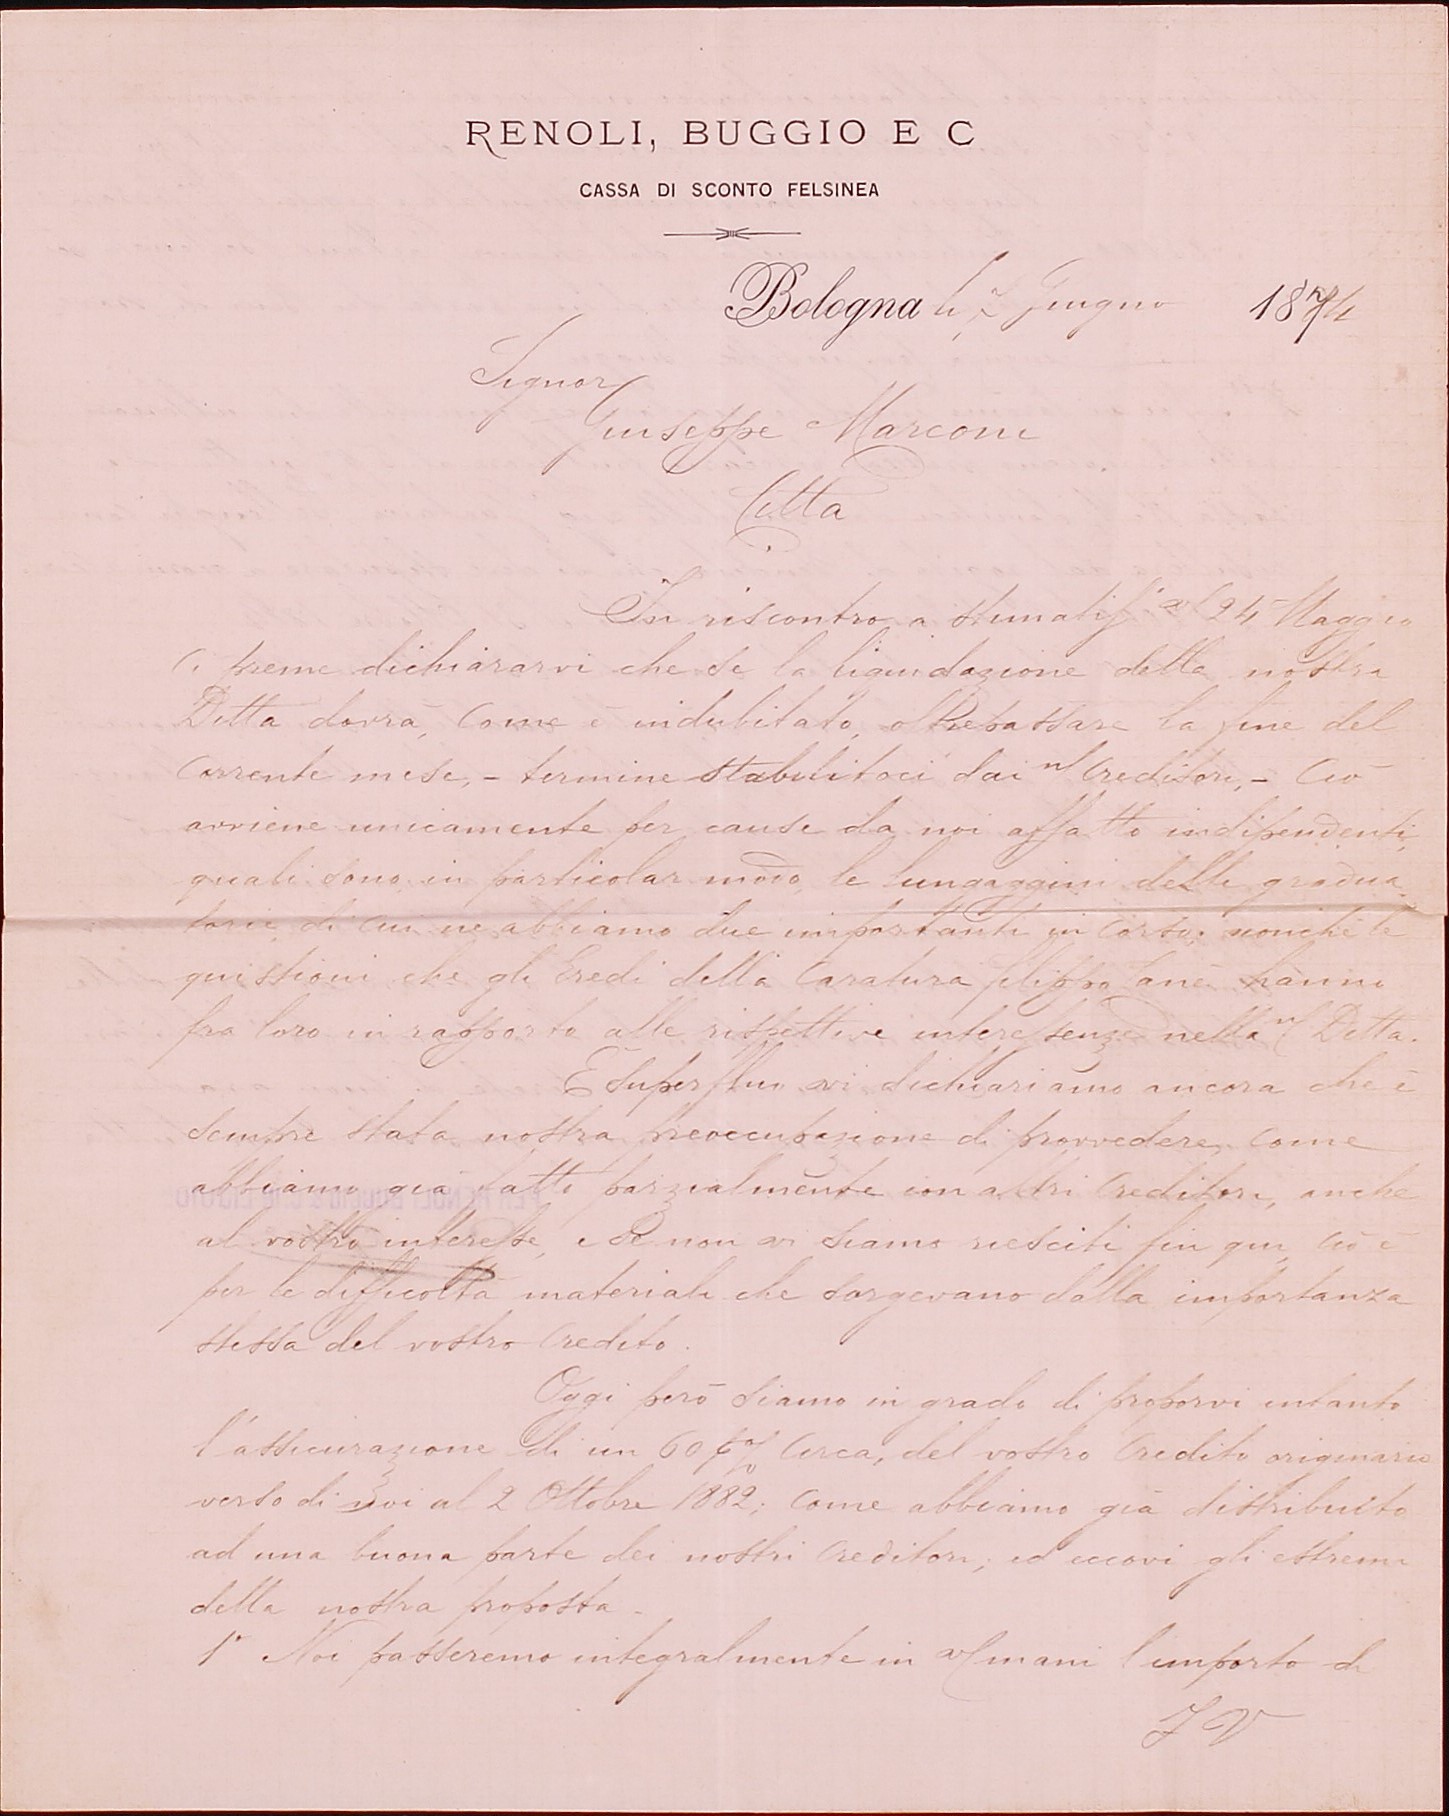 RENOLI, BUGGIO E C
CASSA DI SCONTO FELSINEA
Bologna li 7 Giugno 1884
Signor
Giuseppe Marconi
Città
In riscontro a stimatiss v/ 24 Maggio
Ci preme dichiararvi che se la liquidazione della nostra
Ditta dovrà, come è indubitato, oltrepassare la fine del
corrente mese, - termine stabilitoci dai n/ Creditori, - Ciò
avviene unicamente per cause da noi affatto indipendenti,
quali sono in particolar modo, le lungaggini delle gradua
torie di cui ne abbiamo due importanti in corso; nonchè le
quistioni che gli Eredi della Caratura filippo hanno
fra loro in rapporto alle rispettive interessenze nella n/ Ditta.
È superfluo vi dichiariamo ancora che è
sempre stata nostra preoccupazione di provvedere, come
abbiamo già fatto parzialmente con altri Creditori, anche
al vostro interesse, e se non vi siamo riesciti fin qui, ciò è
per le difficoltà materiali che sorgevano dalla importanza
stessa del vostro Credito.
Oggi però siamo in grado di proporvi intanto
l'assicurazione di un 60 % Circa, del vostro Credito originario
verso di noi al 2 Ottobre 1882; come abbiamo già distribuito
ad una buona parte dei nostri Creditori; ed eccovi gli estremi
della nostra proposta.
1° Noi passeremo integralmente in v/ mani l'importo di